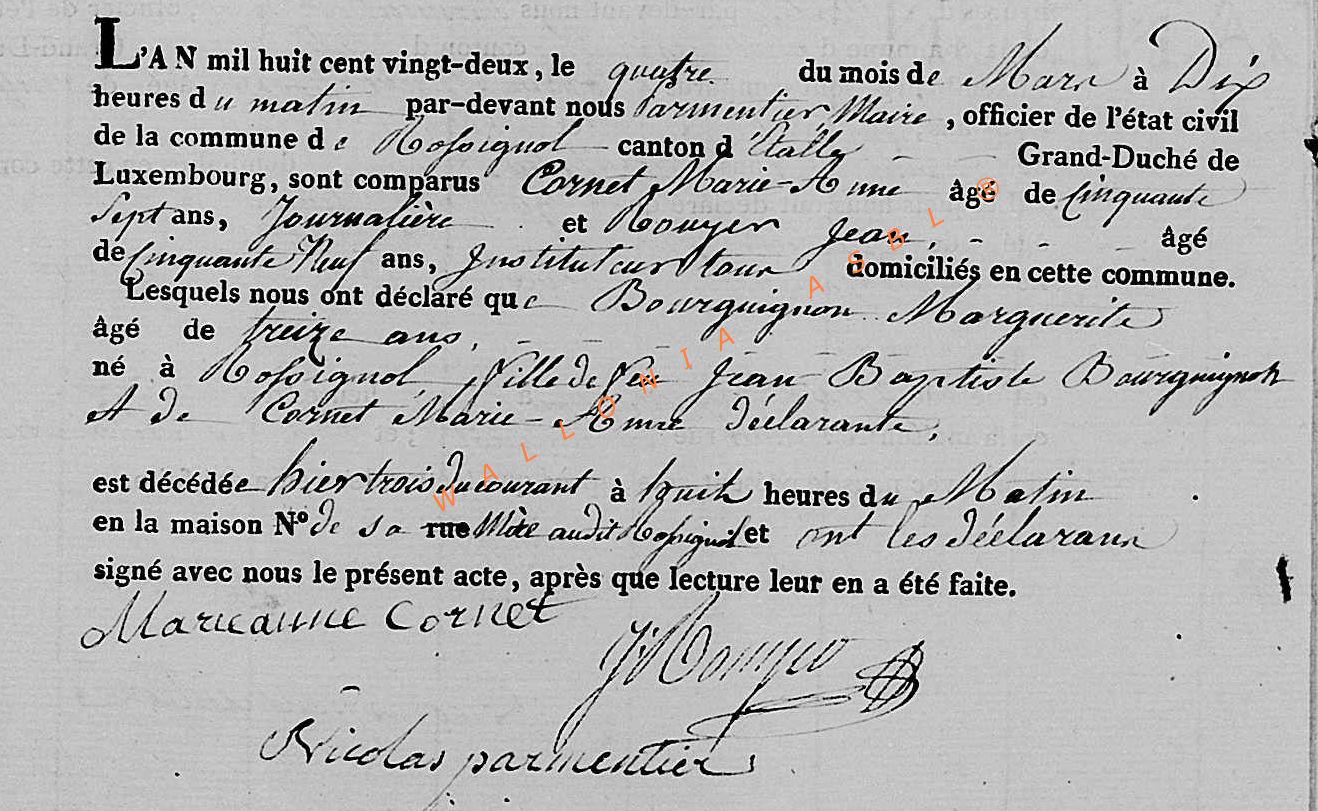 L'AN mil huit cent vingt-deux, le quatre du mois de Mars à Dix
heures du matin par-devant nous Parmentier Maire, officier de l'état civil
de la commune de Rossignol canton d'Etalle - - Grand-Duché de
Luxembourg, sont comparus Cornet Marie-Anne âgé de Cinquante
Sept ans, Journalière et Rouyer Jean, - - - âgé
de Cinquante Neuf ans, Instituteur tous domiciliés en cette commune.
Lesquels nous ont déclaré que Bourguignon Marguerite
âgé de treize ans, - - - -
né à Rossignol, fille de feu Jean Baptiste Bourguignon
et de Cornet Marie-Anne déclarante,
est décédée hier trois du courant à huit heures du Matin
en la maison N° de sa rue Mère audit Rossignol et ont les déclarans
signé avec nous le présent acte, après que lecture leur en a été faite.
Marieanne Cornet
Nicolas parmentier
WALLONIA ASBL ®